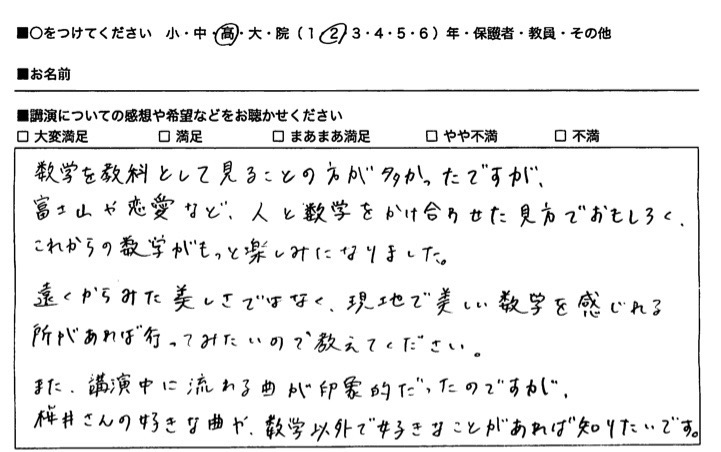 ■○をつけてください 小・中・高・大・院（1・2・3・4・5・6）年・保護者・教員・その他
■お名前
■講演についての感想や希望などをお聴かせください
□ 大変満足 □ 満足 □ まあまあ満足 □ やや不満 □ 不満
数学を教科として見ることの方が多かったですが、
富士山や恋愛など、人と数学をかけ合わせた見方でおもしろく、
これからの数学がもっと楽しみになりました。
遠くからみた美しさではなく、現地で美しい数学を感じれる
所があれば行ってみたいので教えてください。
また、講演中に流れる曲が印象的だったのですが、
桜井さんの好きな曲や、数学以外で好きなことがあれば知りたいです。